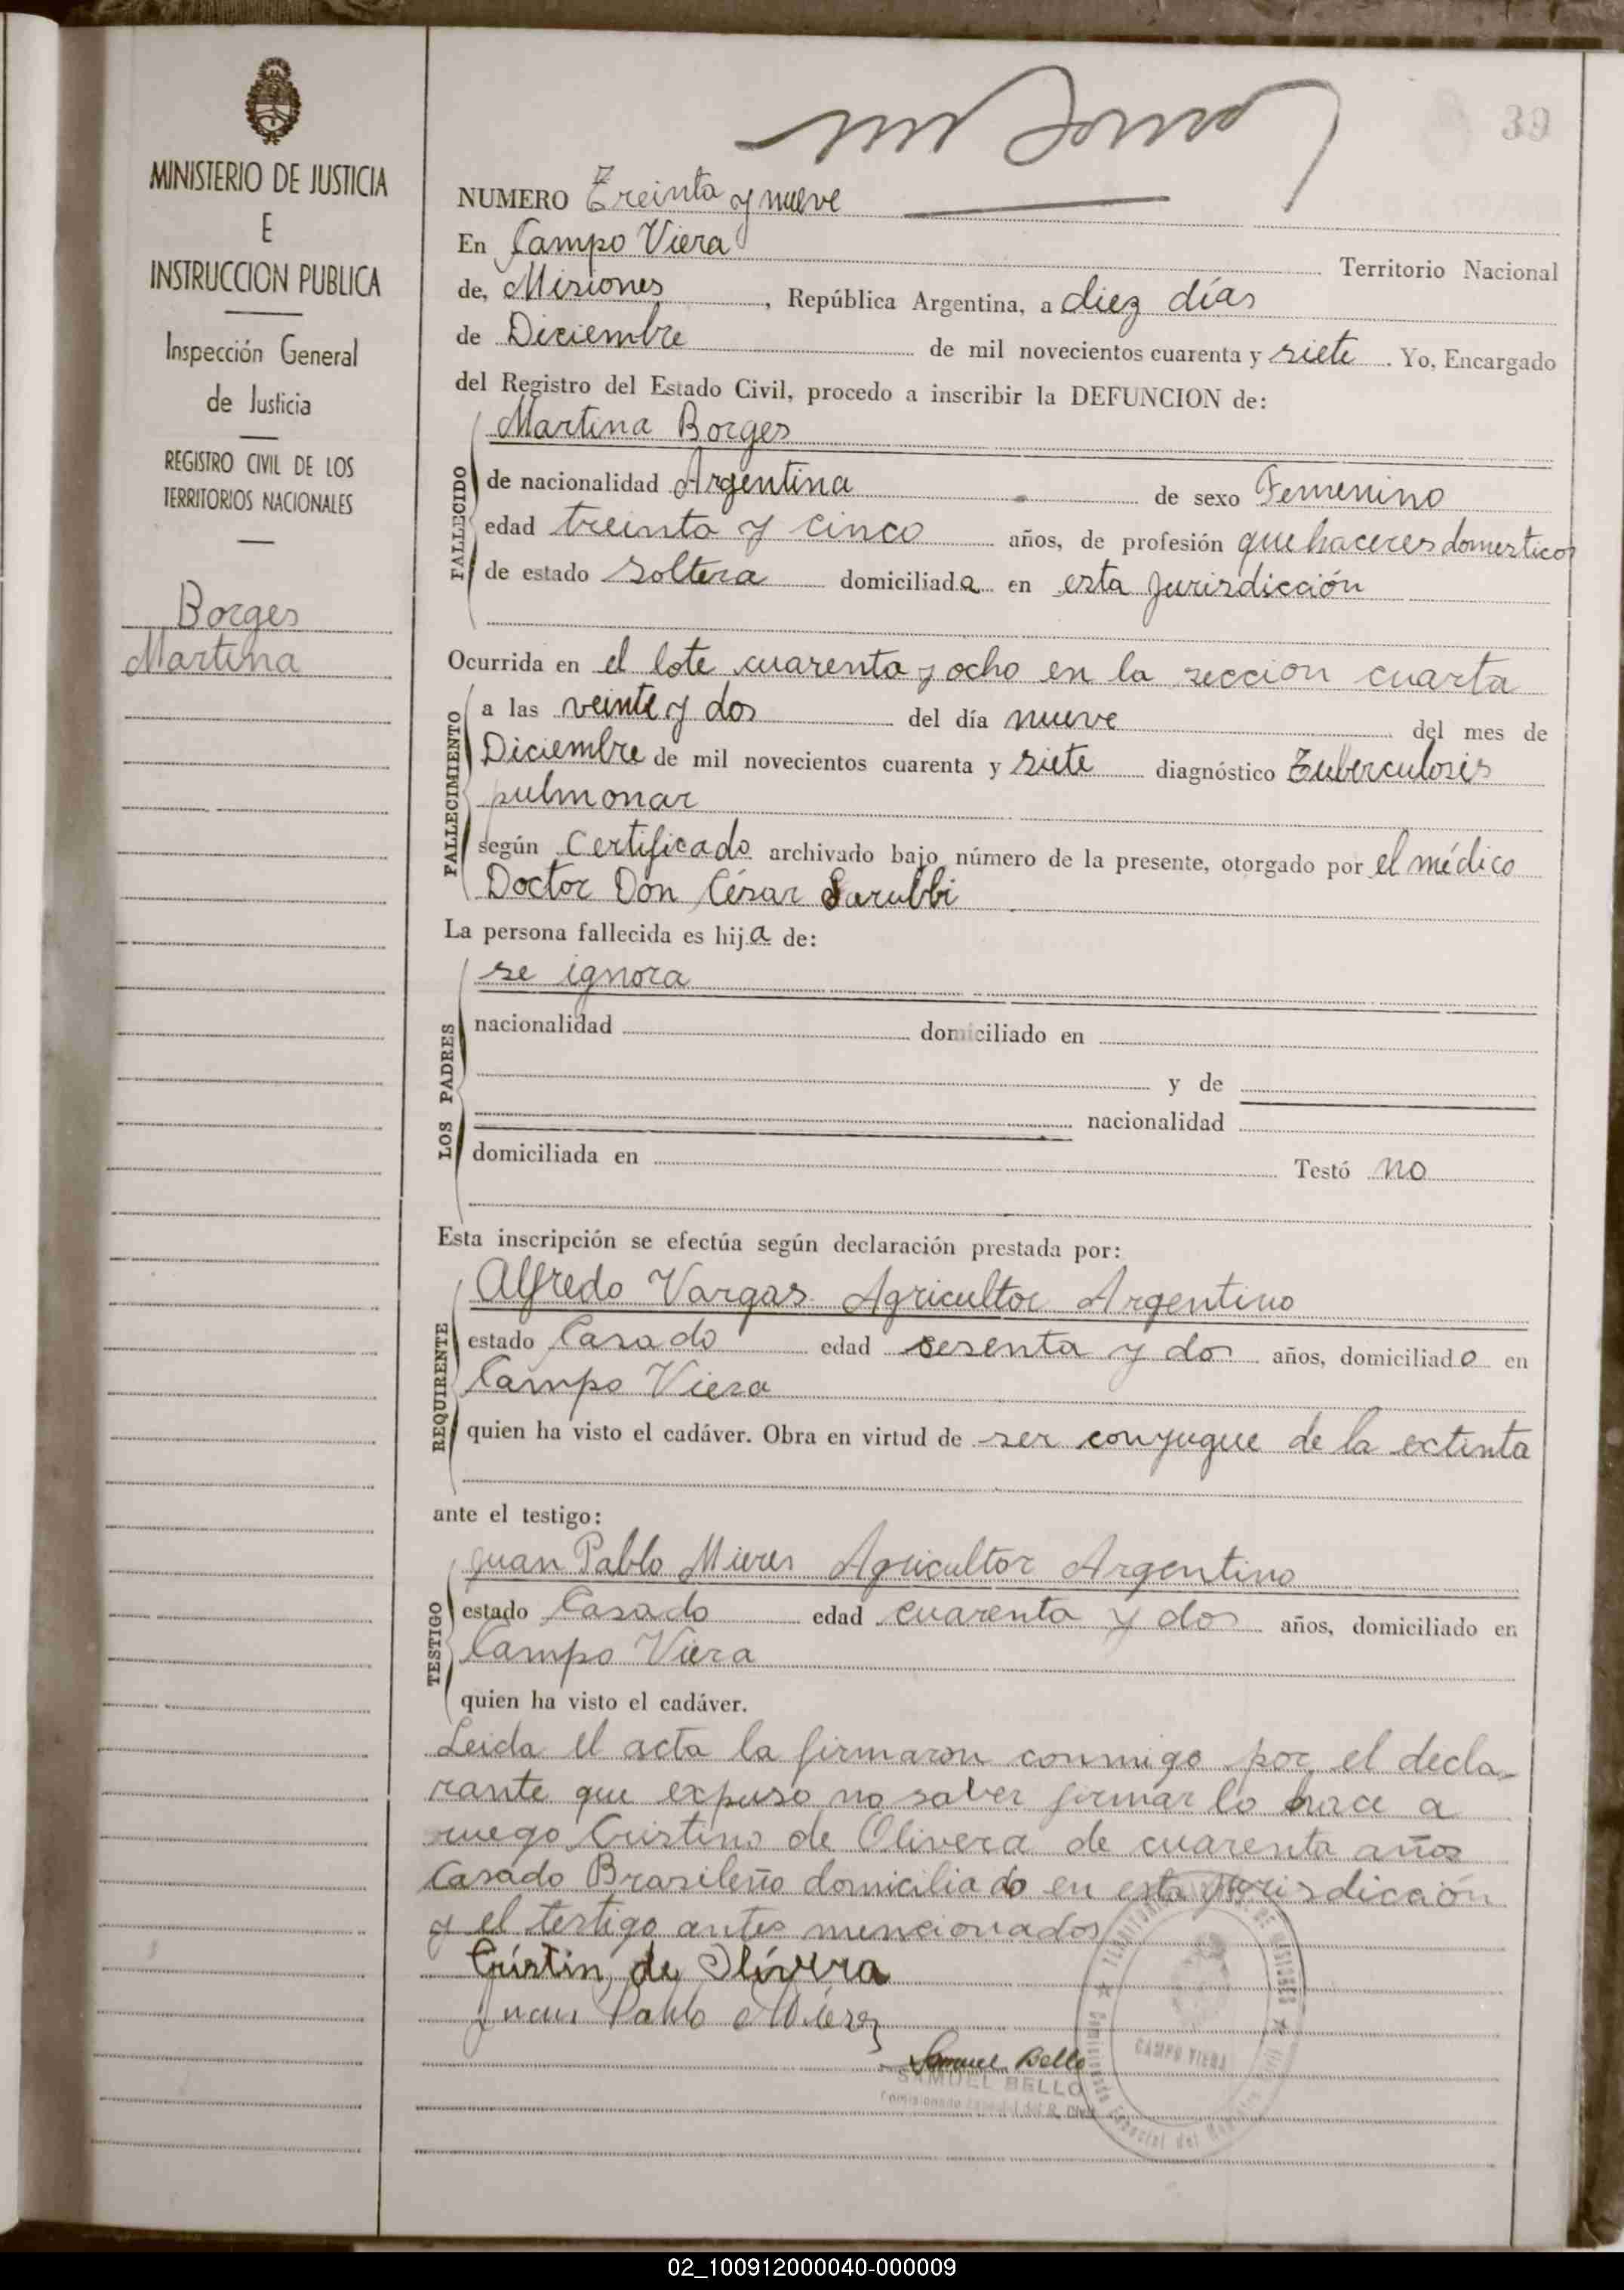 39
MINISTERIO DE JUSTICIA
E
INSTRUCCION PUBLICA
Inspección General
de Justicia
REGISTRO CIVIL DE LOS
TERRITORIOS NACIONALES
Borges
Martina
NUMERO Treinta y nueve
En Campo Viera Territorio Nacional
de, Misiones, República Argentina, a diez días
de Diciembre de mil novecientos cuarenta y siete. Yo, Encargado
del Registro del Estado Civil, procedo a inscribir la DEFUNCION de:
FALLECIDO
Martina Borges
de nacionalidad Argentina de sexo Femenino
edad treinta y cinco años, de profesión quehaceres domesticos
de estado soltera domiciliada en esta jurisdicción
Ocurrida en el lote cuarenta y ocho en la seccion cuarta
FALLECIMIENTO
a las veinte y dos del día nueve del mes de
Diciembre de mil novecientos cuarenta y siete diagnóstico Tuberculosis
pulmonar
según Certificado archivado bajo número de la presente, otorgado por el médico
Doctor Don César Sarubbi
La persona fallecida es hija de:
LOS PADRES
se ignora
nacionalidad domiciliado en
y de
nacionalidad
domiciliada en Testó no
Esta inscripción se efectúa según declaración prestada por:
REQUIRENTE
Alfredo Vargas Agricultor Argentino
estado Casado edad sesenta y dos años, domiciliado en
Campo Viera
quien ha visto el cadáver. Obra en virtud de ser conyugue de la extinta
ante el testigo:
TESTIGO
Juan Pablo Mieres Agricultor Argentino
estado Casado edad cuarenta y dos años, domiciliado en
Campo Viera
quien ha visto el cadáver.
Leida el acta la firmaron conmigo por el decla-
rante que expuso no saber firmar lo hace a
ruego Cristino de Olivera de cuarenta años
Casado Brasileño domiciliado en esta jurisdicción
y el testigo antes mencionados
Cristin de Olivera
Juan Pablo Mierez
Samuel Bello
SAMUEL BELLO
Comisionado Especial del R. Civil
CAMPO VIERA
02_100912000040-000009